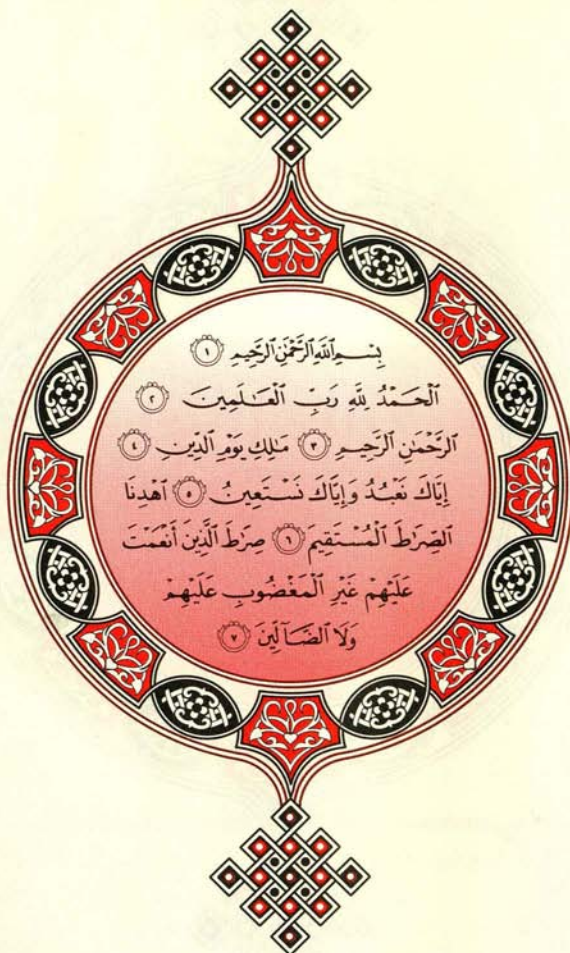 بِسْمِ اللَّهِ الرَّحْمَٰنِ الرَّحِيمِ ١
الْحَمْدُ لِلَّهِ رَبِّ الْعَالَمِينَ ٢
الرَّحْمَٰنِ الرَّحِيمِ ٣ مَالِكِ يَوْمِ الدِّينِ ٤
إِيَّاكَ نَعْبُدُ وَإِيَّاكَ نَسْتَعِينُ ٥ اهْدِنَا
الصِّرَاطَ الْمُسْتَقِيمَ ٦ صِرَاطَ الَّذِينَ أَنْعَمْتَ
عَلَيْهِمْ غَيْرِ الْمَغْضُوبِ عَلَيْهِمْ
وَلَا الضَّالِّينَ ٧